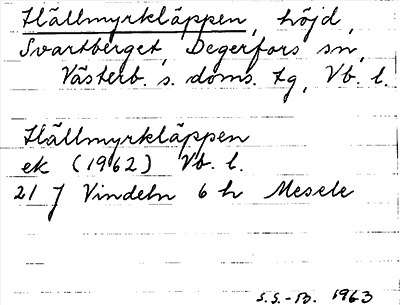 Hällmyrkläppen, höjd,
Svartberget, Degerfors sn,
Västerb. s. doms. tg, Vb. l.
Hällmyrkläppen
ek (1962) Vb. l.
21 J Vindeln 6 h Mesele
S.S.-B. 1963